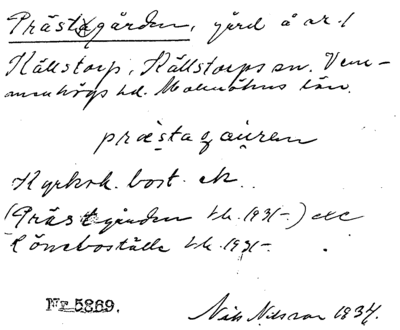 Prästgården, gård å nr 1
Källstorp, Källstorps sn. Vem-
menhögs hd. Malmöhus län.
præstagauren
Kyrkoh. bost. ek.
(Prästgården hk. 1931-) etc
Löneboställe hk. 1931-
Nr 5869.
Nils Nilsson 1934.